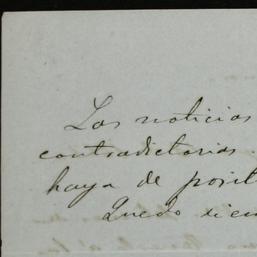 Las noticias
contradictorias.
haya de posit
Quedo siem